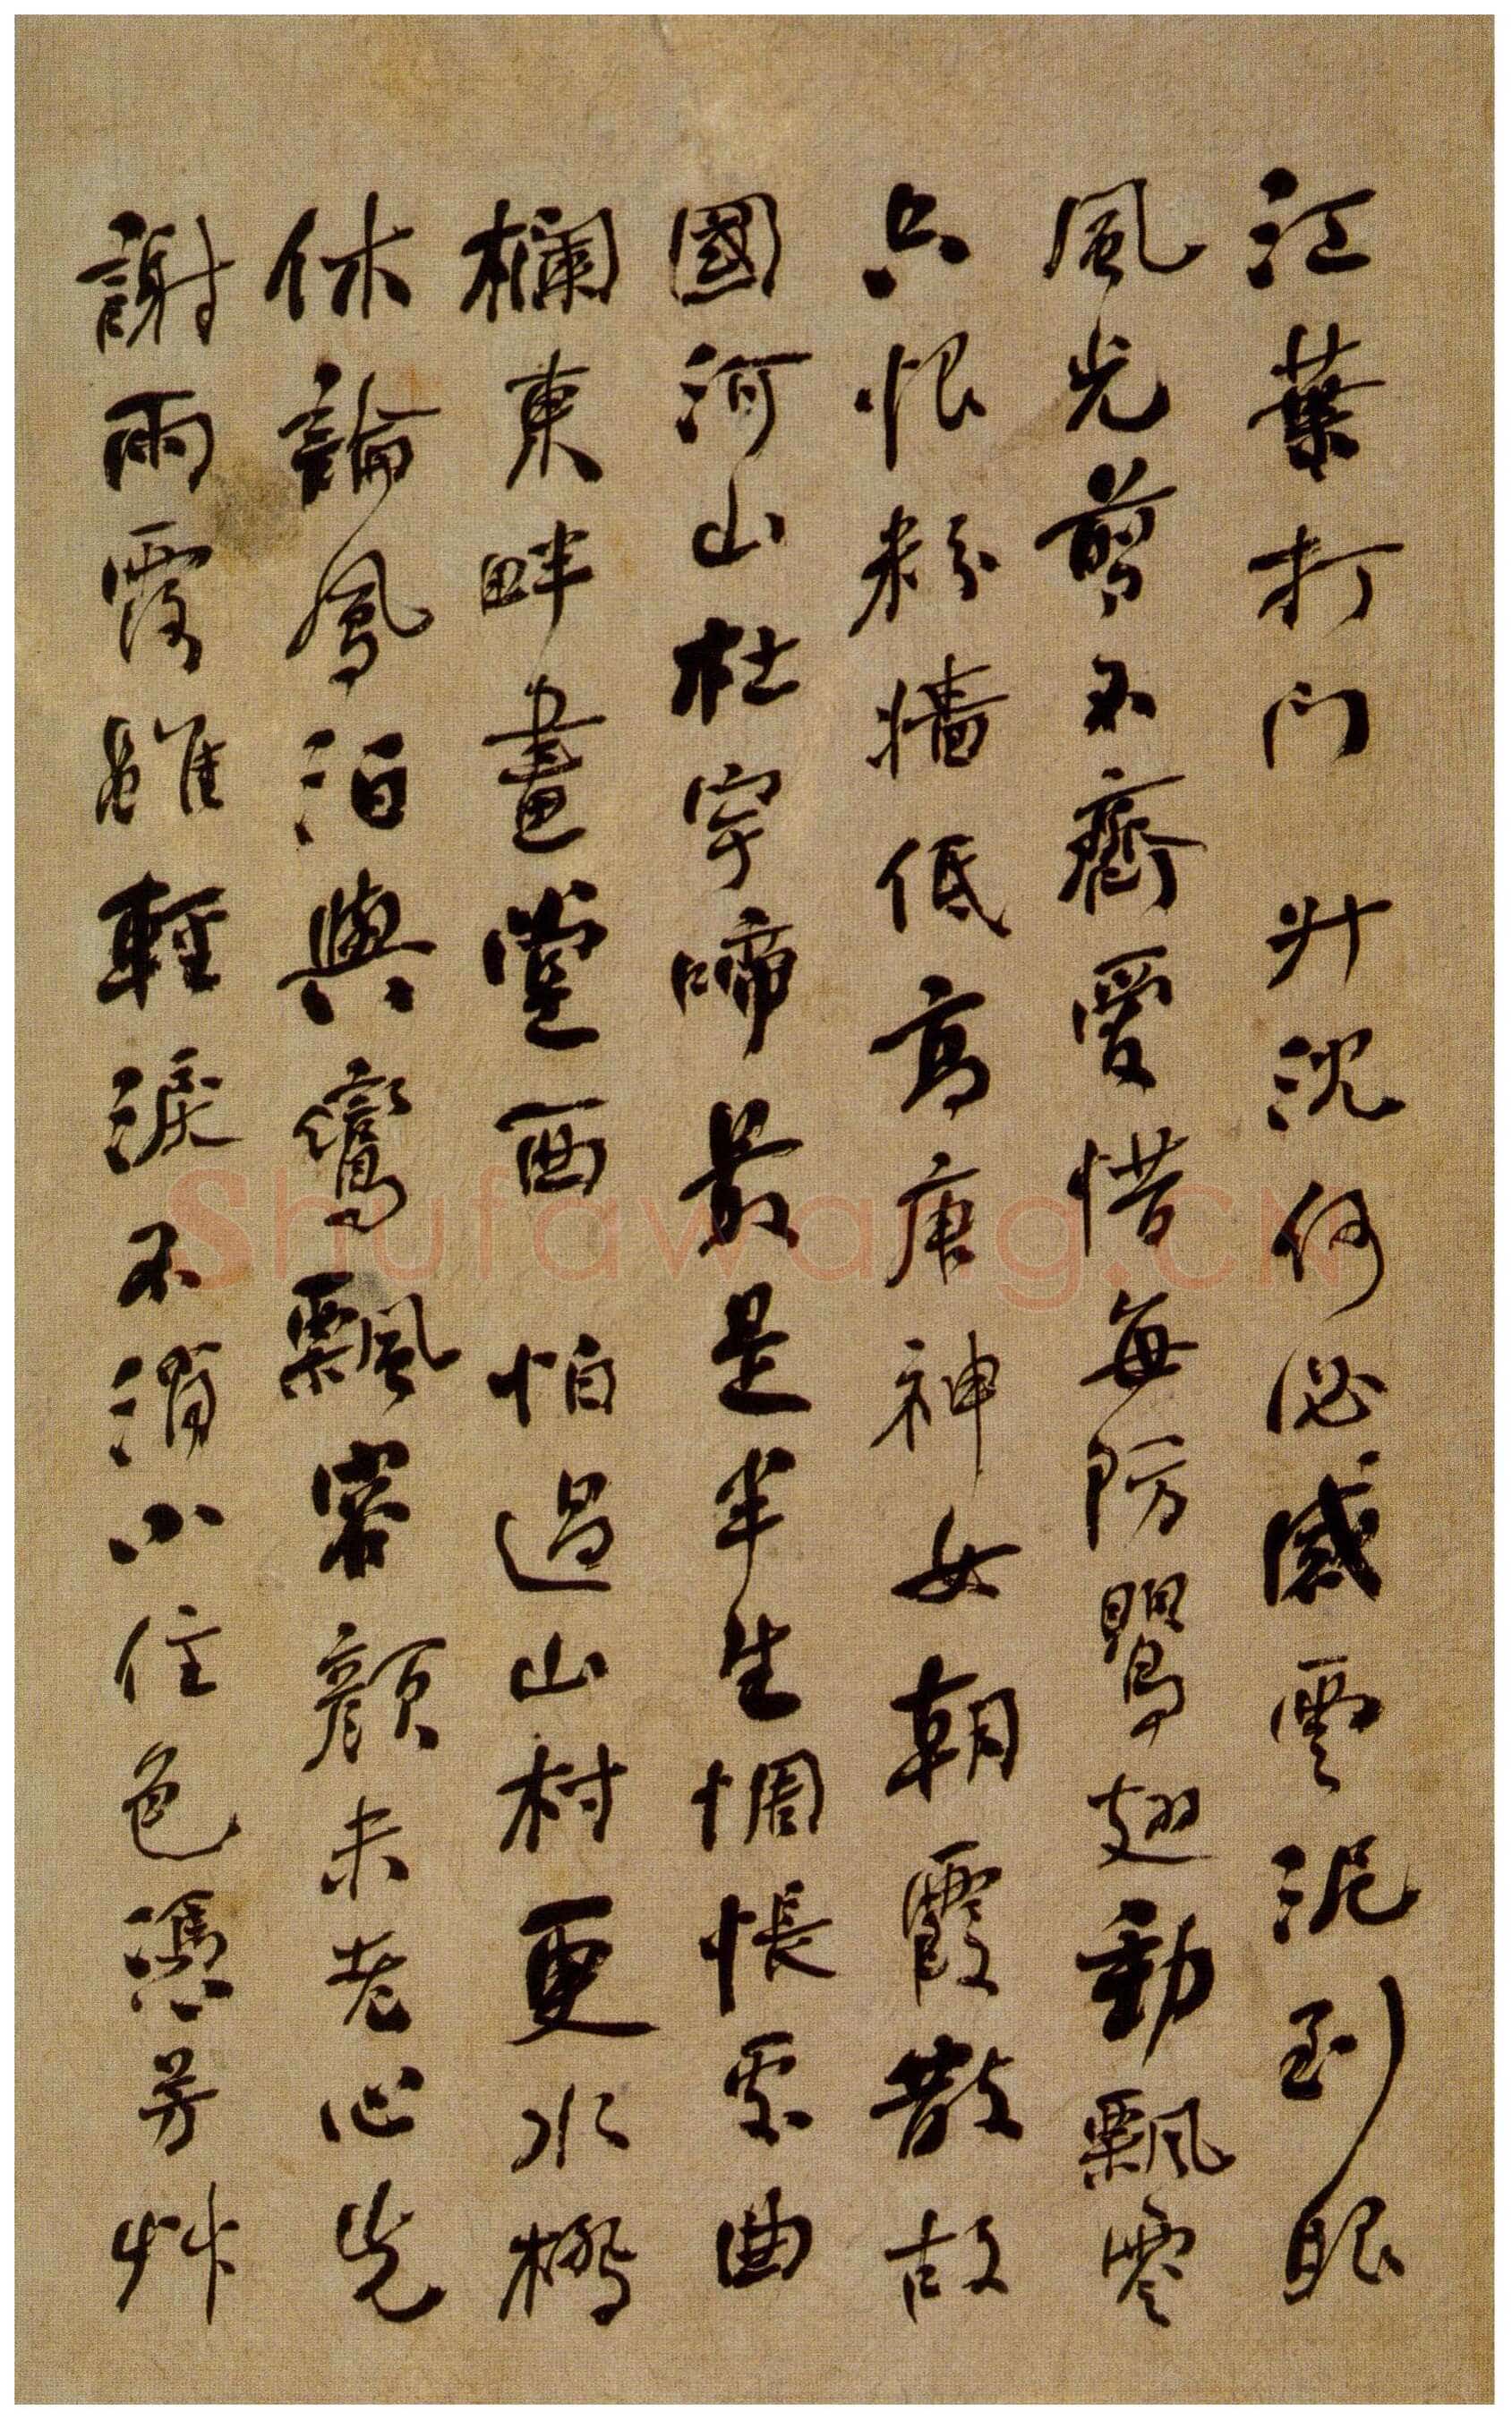 江葉打門 升沈何必感雲泥到眼
風光剪不齊愛惜每防鸎翅動飄零
只恨粉牆低高唐神女朝霞散故
國河山杜宇啼最是半生惆悵處曲
欄東畔畫堂西 怕過山村更水橋
休論鳳泊與鸞飄容顔未老心先
謝雨露雖輕淚不消小住色憑芳艸
shufawang.cn